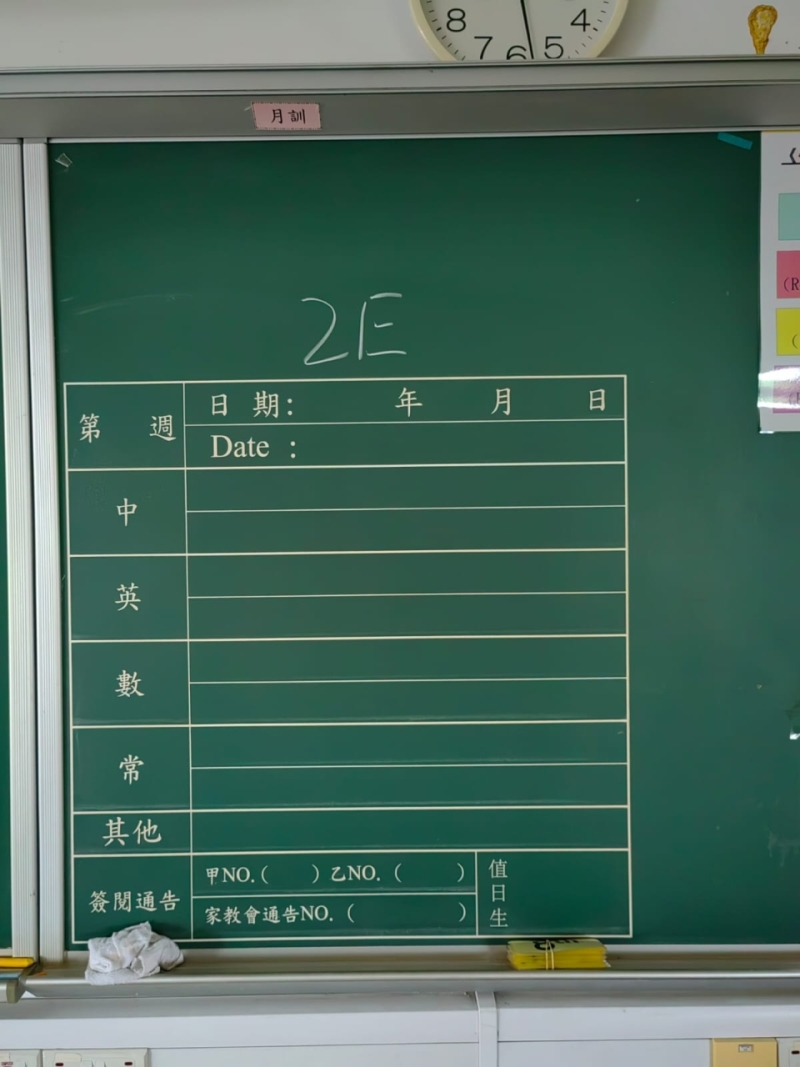 8 4
7 6 5
月訓
2E
第 週
日 期： 年 月 日
Date ：
中
英
數
常
其他
簽閱通告
甲NO.( ) 乙NO. ( )
家教會通告NO. ( )
值日生